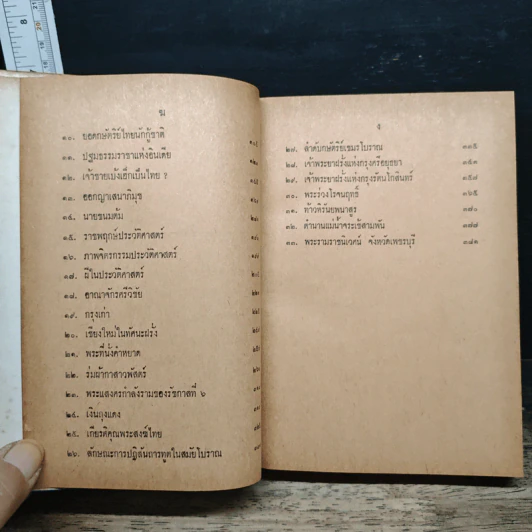 ฆ
๑๐. ยอดกษัตริย์ไทยนักกู้ชาติ
๑๑. ปฐมธรรมราชาแห่งอินเดีย
๑๒. เจ้าชายเม้งเฮ็กเป็นไทย ?
๑๓. ออกญาเสนาภิมุข
๑๔. นายขนมต้ม
๑๕. ราชพฤกษ์ประวัติศาสตร์
๑๖. ภาพจิตรกรรมประวัติศาสตร์
๑๗. ผีในประวัติศาสตร์
๑๘. อาณาจักรศรีวิชัย
๑๙. กรุงเก่า
๒๐. เชียงใหม่ในทัศนะฝรั่ง
๒๑. พระที่นั่งคำหยาด
๒๒. ร่มผ้ากาสาวพัสตร์
๒๓. พระแสงศรกำลังรามของรัชกาลที่ ๖
๒๔. เงินถุงแดง
๒๕. เกียรติคุณพระสงฆ์ไทย
๒๖. ลักษณะการปฏิสันถารทูตในสมัยโบราณ
ง
๒๗. ลำดับกษัตริย์เขมรโบราณ ๓๓๕
๒๘. เจ้าพระยาฝรั่งแห่งกรุงศรีอยุธยา ๓๕๑
๒๙. เจ้าพระยาฝรั่งแห่งกรุงรัตนโกสินทร์ ๓๕๗
๓๐. พระร่วงโรจนฤทธิ์ ๓๖๕
๓๑. ท้าวหิรันยพนาสูร ๓๗๐
๓๒. ตำนานแม่น้ำจระเข้สามพัน ๓๗๗
๓๓. พระรามราชนิเวศน์ จังหวัดเพชรบุรี ๓๘๑
8
9